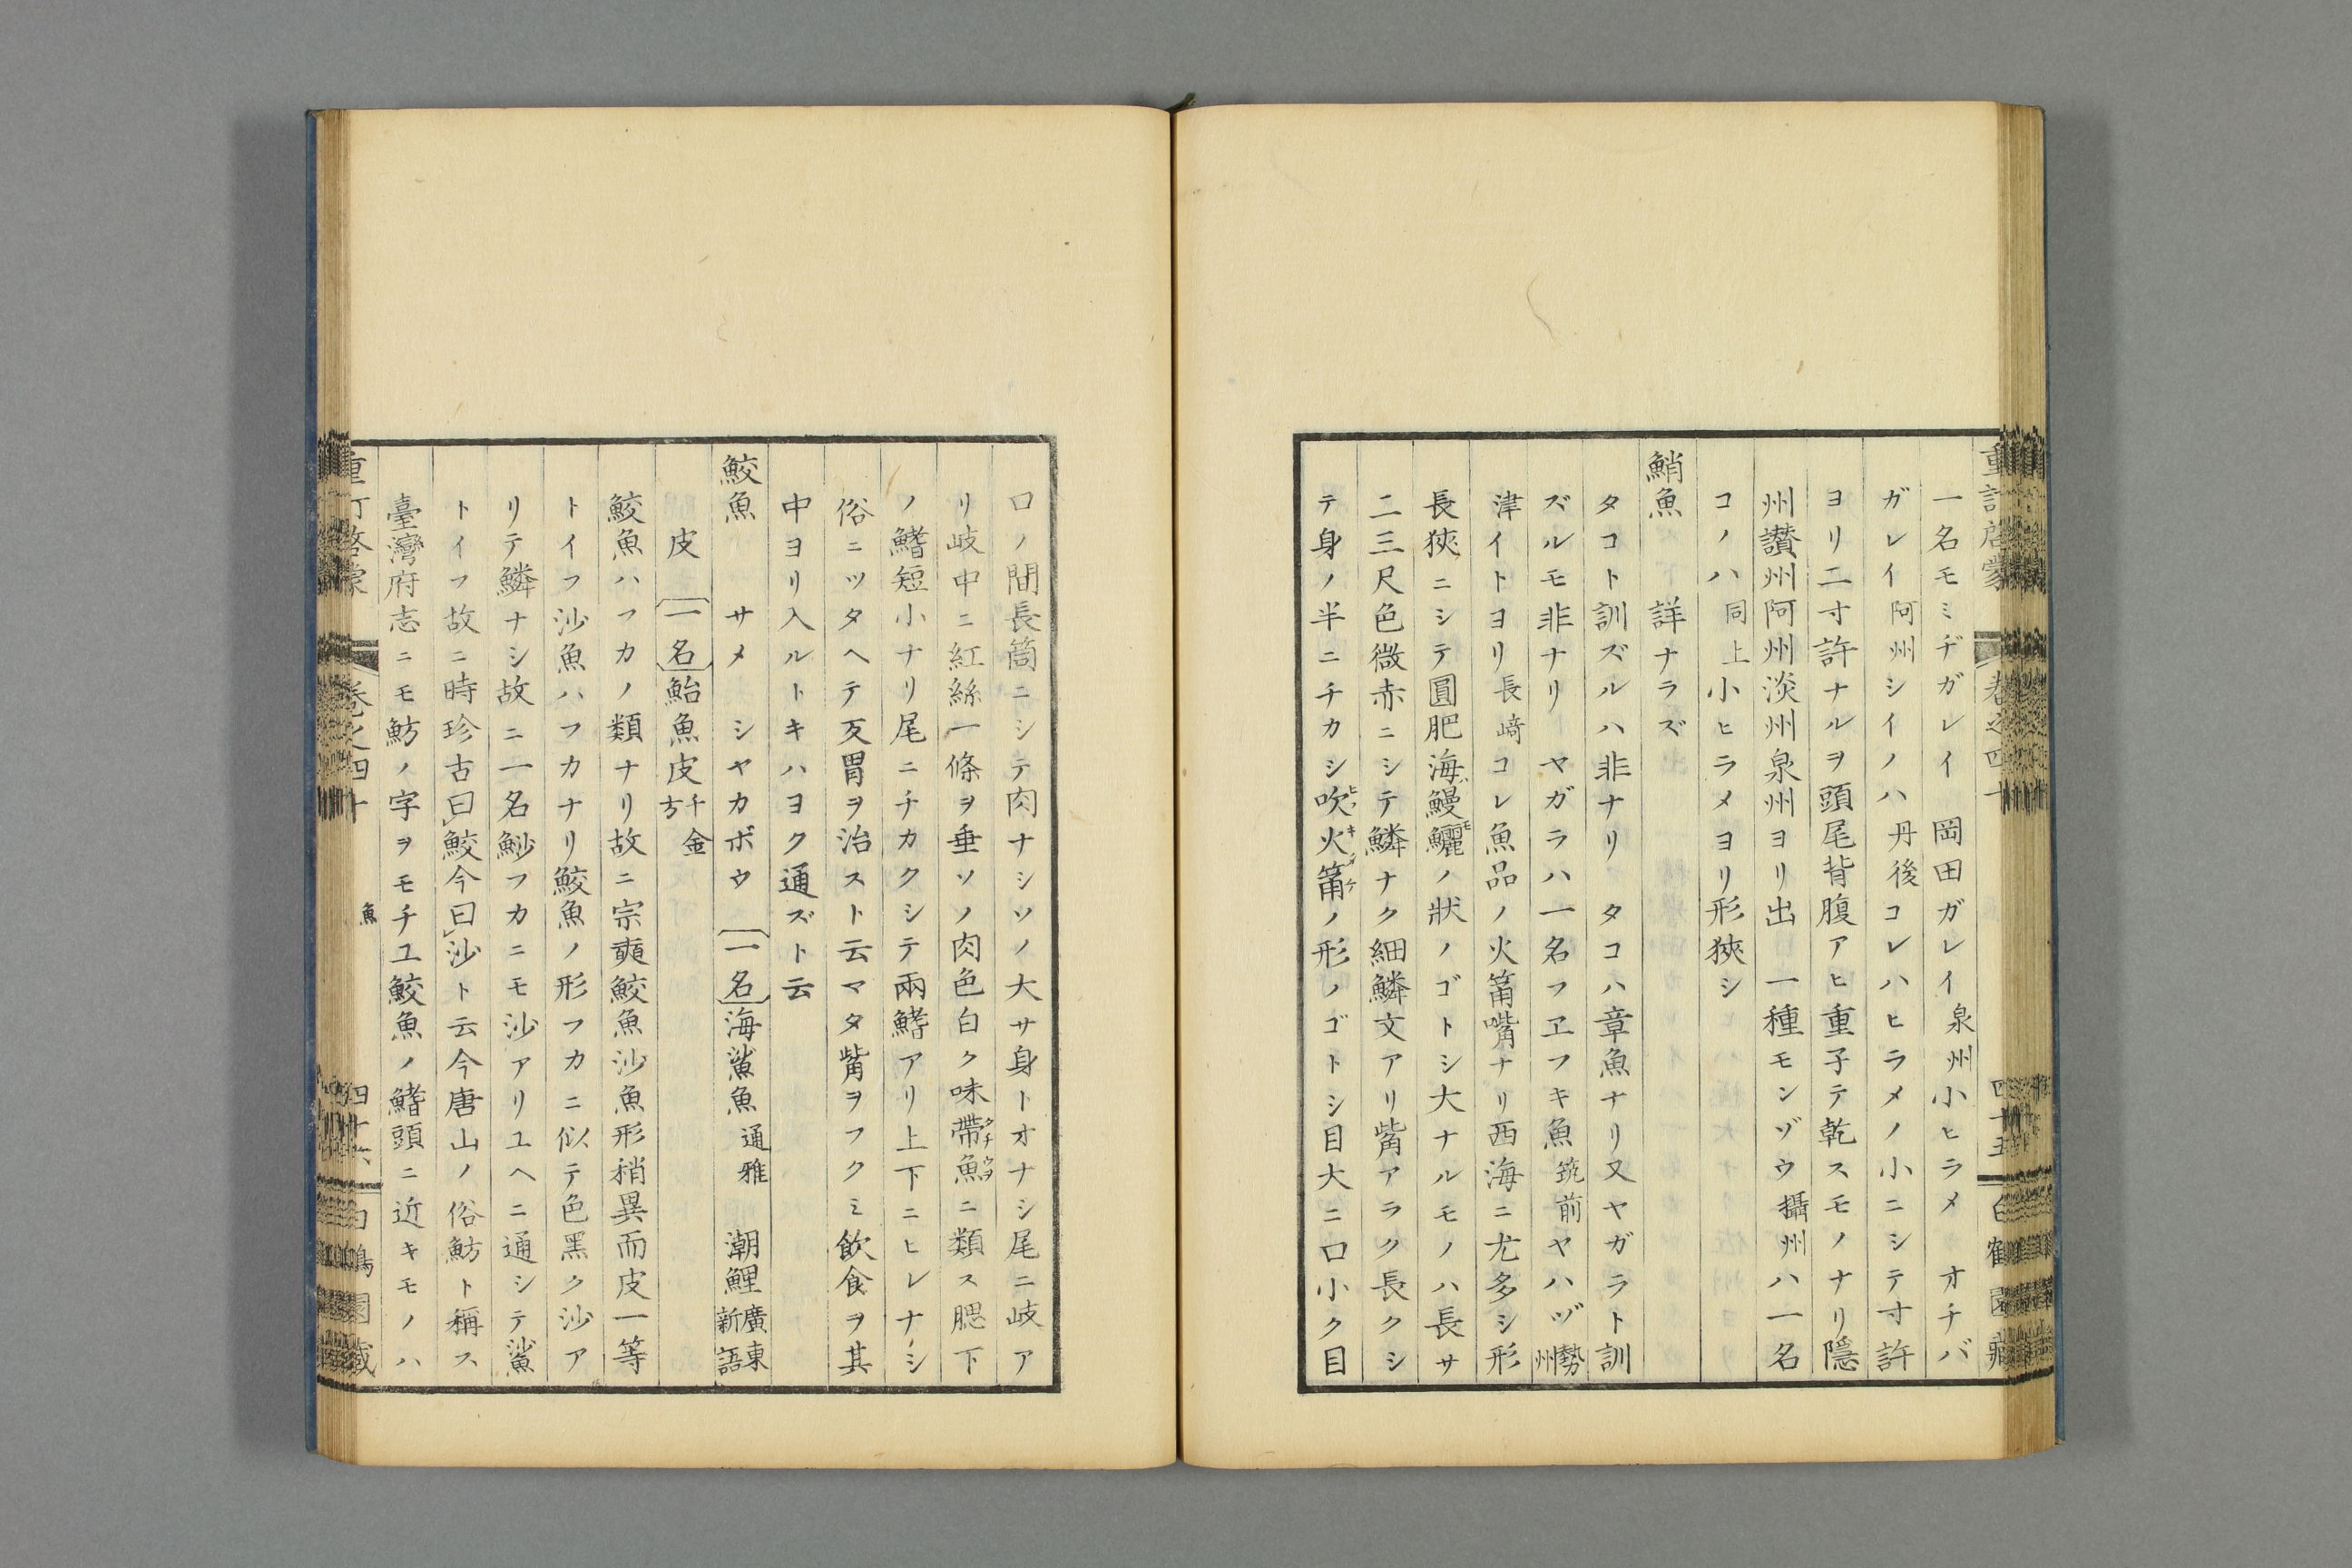 重訂啓蒙 卷之四十 四十五 白鶴園藏
一名モミヂガレイ 岡田ガレイ 泉州 小ヒラメ オチバ
ガレイ 阿州 シイノハ 丹後 コレハヒラメノ小ニシテ寸許
ヨリ二寸許ナルヲ頭尾背腹アヒ重子テ乾スモノナリ隱
州讃州阿州淡州泉州ヨリ出 一種モンゾウ 攝州 ハ一名
コノハ 同上 小ヒラメヨリ形狹シ
鮹魚 詳ナラズ
タコト訓ズルハ非ナリ タコハ章魚ナリ又ヤガラト訓
ズルモ非ナリ ヤガラハ一名フヱフキ魚 筑前 ヤハヅ 勢州
津イトヨリ 長﨑 コレ魚品ノ火筩嘴ナリ西海ニ尤多シ形
長狹ニシテ圓肥海鰻鱺ノ狀ノゴトシ大ナルモノハ長サ
二三尺色微赤ニシテ鱗ナク細鱗文アリ觜アラク長クシ
テ身ノ半ニチカシ吹火筩ノ形ノゴトシ目大ニ口小ク目
口ノ間長筒ニシテ肉ナシソノ大サ身トオナシ尾ニ岐ア
リ岐中ニ紅絲一條ヲ垂ソノ肉色白ク味帶魚ニ類ス腮下
ノ鰭短小ナリ尾ニチカクシテ兩鰭アリ上下ニヒレナシ
俗ニツタヘテ反胃ヲ治スト云マタ觜ヲフクミ飲食ヲ其
中ヨリ入ルトキハヨク通ズト云
鮫魚 サメ シヤカボウ 一名 海鯊魚 通雅 潮鯉 廣東新語
皮 一名 鮐魚皮 千金方
鮫魚ハフカノ類ナリ故ニ宗奭鮫魚沙魚形稍異而皮一等
トイフ沙魚ハフカナリ鮫魚ノ形フカニ似テ色黑ク沙ア
リテ鱗ナシ故ニ一名魦フカニモ沙アリユヘニ通シテ鯊
トイフ故ニ時珍古曰鮫今曰沙ト云今唐山ノ俗魴ト稱ス
臺灣府志ニモ魴ノ字ヲモチユ鮫魚ノ鰭頭ニ近キモノハ
重訂啓蒙 卷之四十 魚 四十六 白鶴園藏